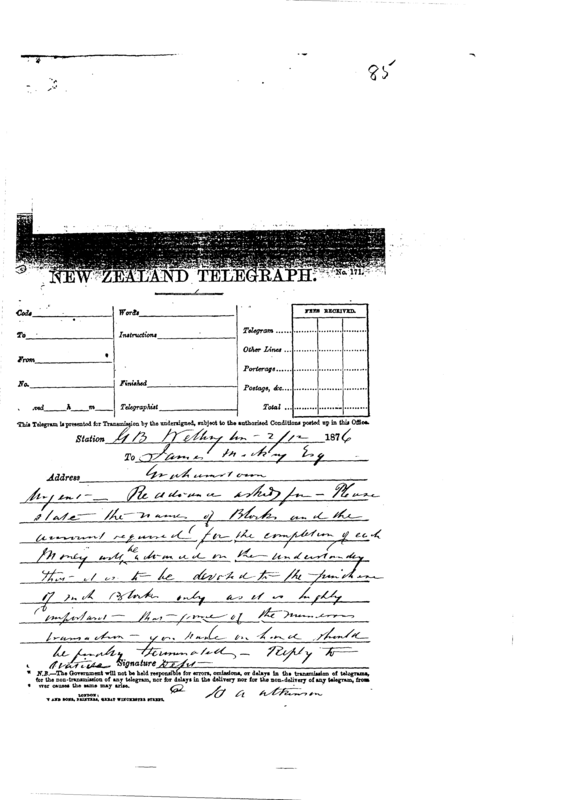 85
NEW ZEALAND TELEGRAPH. No. 171.
Code
Words
FEES RECEIVED.
To
Instructions
Telegram ......
Other Lines ...
From
Porterage......
No.
Finished
Postage, &c....
ved h m
Telegraphist
Total ...
This Telegram is presented for Transmission by the undersigned, subject to the authorised Conditions posted up in this Office.
Station G B Wellington - 2/12 1876
To James Mackay Esq
Address Grahamstown
Urgent - Re advance asked for - Please
state the names of Blocks and the
amount required for the completion of each
Money will be advanced on the understanding
that it is to be devoted to the purchase
of such Blocks only as it is highly
important - that some of the numerous
transaction - you have on hand should
be finally terminated - Reply to
Native Signature Dept
N.B.—The Government will not be held responsible for errors, omissions, or delays in the transmission of telegrams,
for the non-transmission of any telegram, nor for delays in the delivery nor for the non-delivery of any telegram, from
ver causes the same may arise.
H A Atkinson
LONDON:
V AND SONS, PRINTERS, GREAT WINCHESTER STREET.